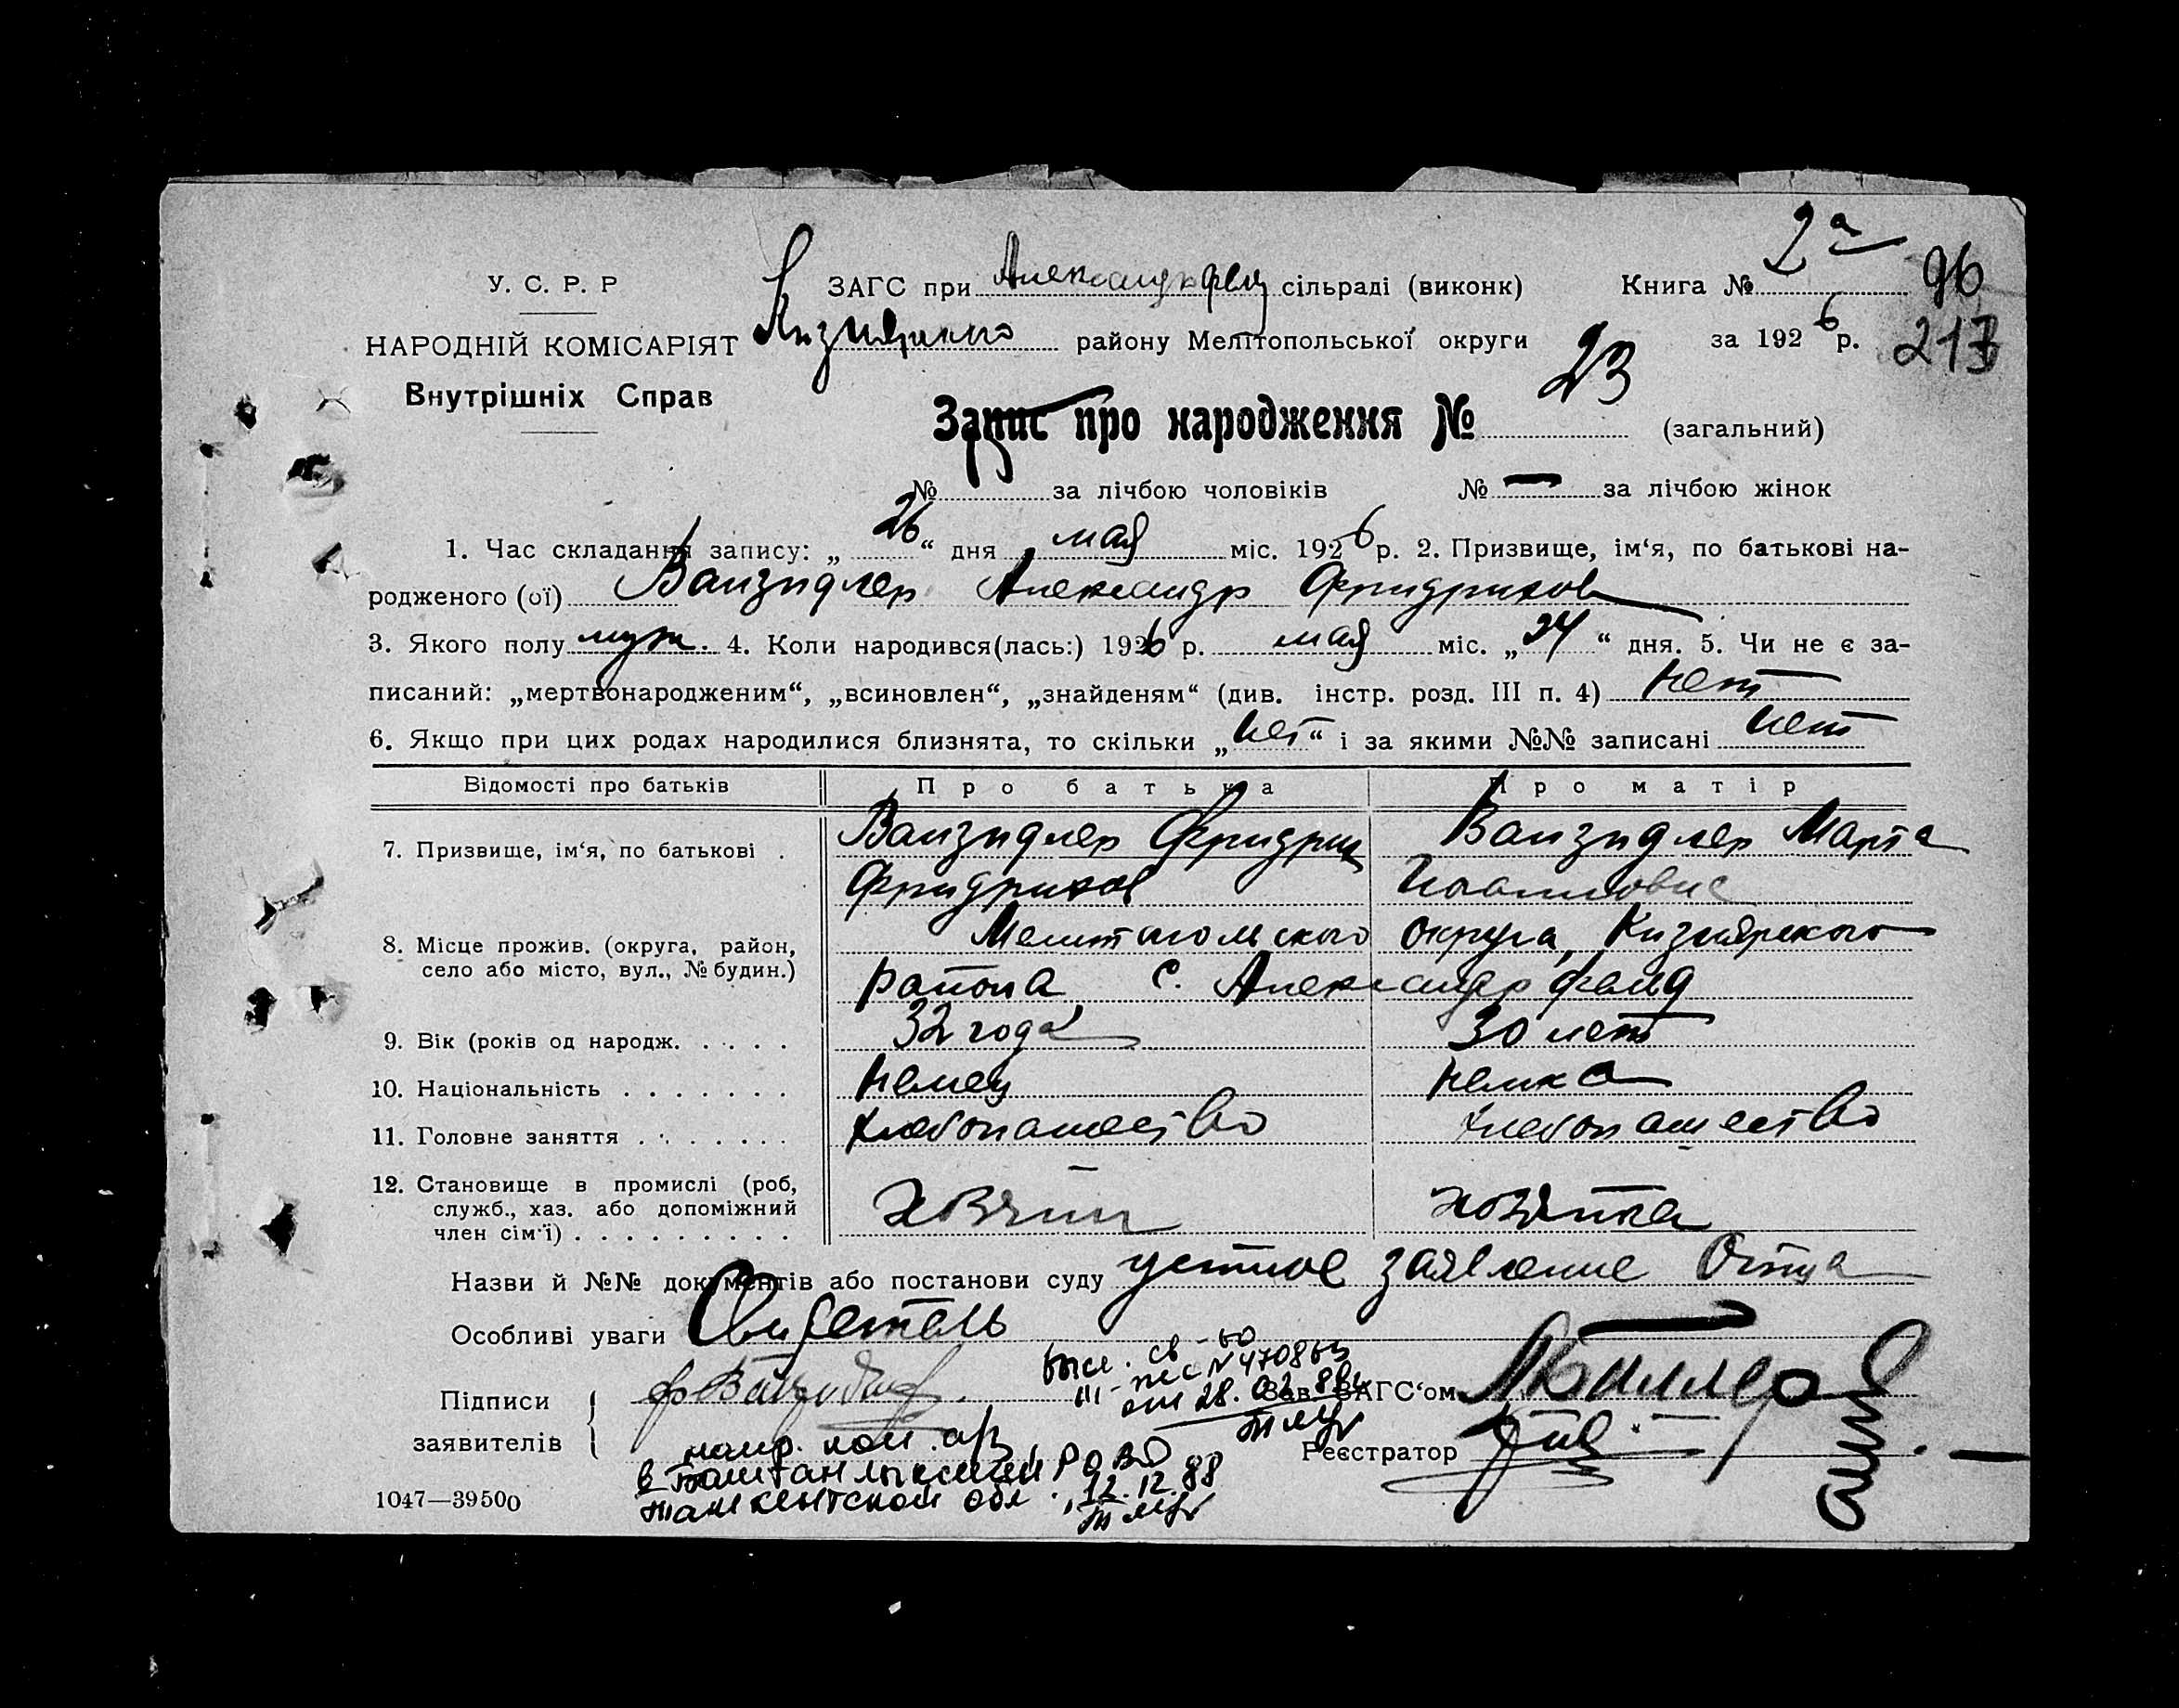 У. С. Р. Р
НАРОДНІЙ КОМІСАРІЯТ
Внутрішніх Справ
ЗАГС при сільраді (виконк)
району Мелітопольської округи
Книга № 2а
за 1926 р.
96
217
Запис про народження № 23 (загальний)
№ за лічбою чоловіків № — за лічбою жінок
1. Час складання запису: „26“ дня мая міс. 1926 р. 2. Призвище, ім‘я, по батькові на-
родженого (ої) Ваизидлер Александр Фридрихов
3. Якого полу муж. 4. Коли народився(лась:) 1926 р. мая міс. „24“ дня. 5. Чи не є за-
писаний: „мертвонародженим“, „всиновлен“, „знайденям“ (див. інстр. розд. III п. 4) нет
6. Якщо при цих родах народилися близнята, то скільки „нет“ і за якими №№ записані нет
Відомості про батьків Про батька Про матір
7. Призвище, ім‘я, по батькові . Ваизидлер Фридрих Ваизидлер Марта
Фридрихов
8. Місце прожив. (округа, район, Мелитопольского округа, Кизиярского
село або місто, вул., № будин.) района с. Александрфельд
9. Вік (років од народж. . . . . 32 года 30 лет
10. Національність . . . . . . . немец немка
11. Головне заняття . . . . . . . хлебопашество хлебопашество
12. Становище в промислі (роб, служб., хаз. або допоміжний член сім‘ї) . . . . . . . . . хозяин хозяйка
Назви й №№ документів або постанови суду устное заявление Отца
Особливі уваги Свидетель
Підписи
заявителів
Зав. ЗАГС‘ом
Реєстратор
выс. св-во
от 28.02.88
в РОВД
Ташкентской обл. 12.12.88
1047—39500